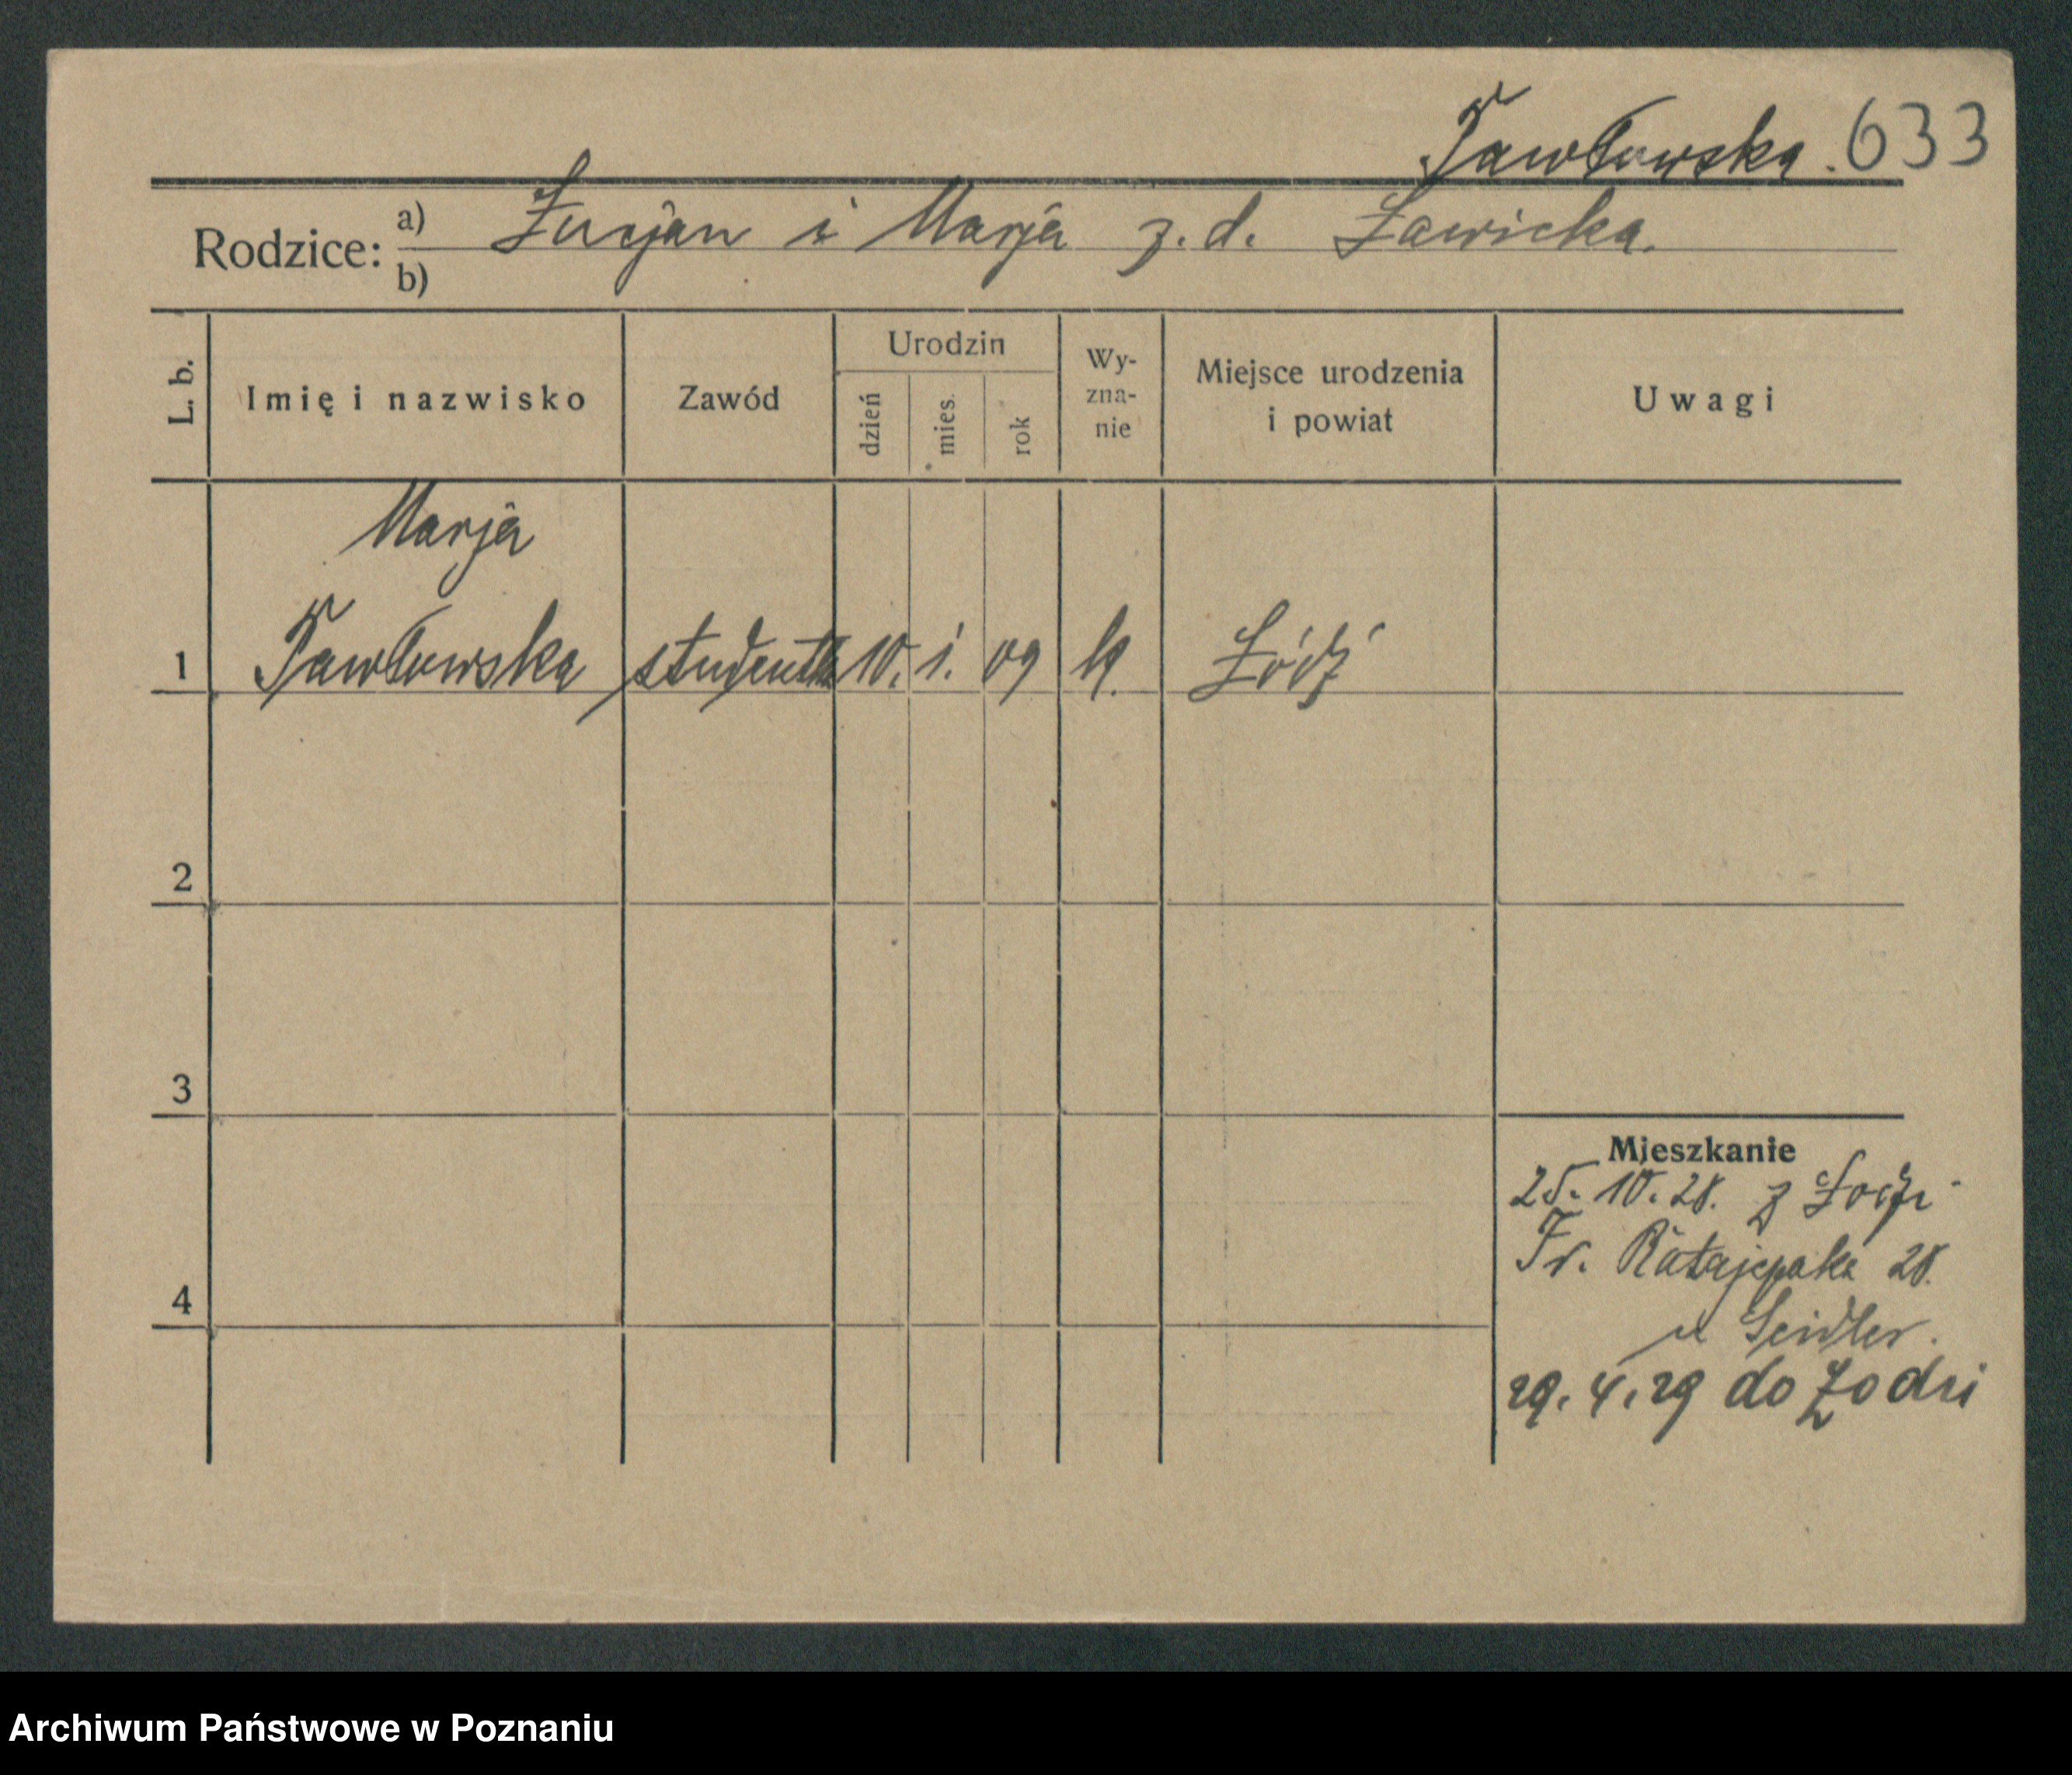 Pawłowska. 633
Rodzice: a) Łucjan i Marja z. d. Ławicka.
b)
L. b. Imię i nazwisko Zawód Urodzin dzień mies. rok Wy-zna-nie Miejsce urodzenia i powiat Uwagi
Marja
1 Pawłowska studentka 10. 1. 09 k. Łódź
2
3
Mieszkanie
25. 10. 28. z Łodzi
Fr. Ratajczaka 28.
4
u Seidler.
29. 4. 29 do Łodzi
Archiwum Państwowe w Poznaniu